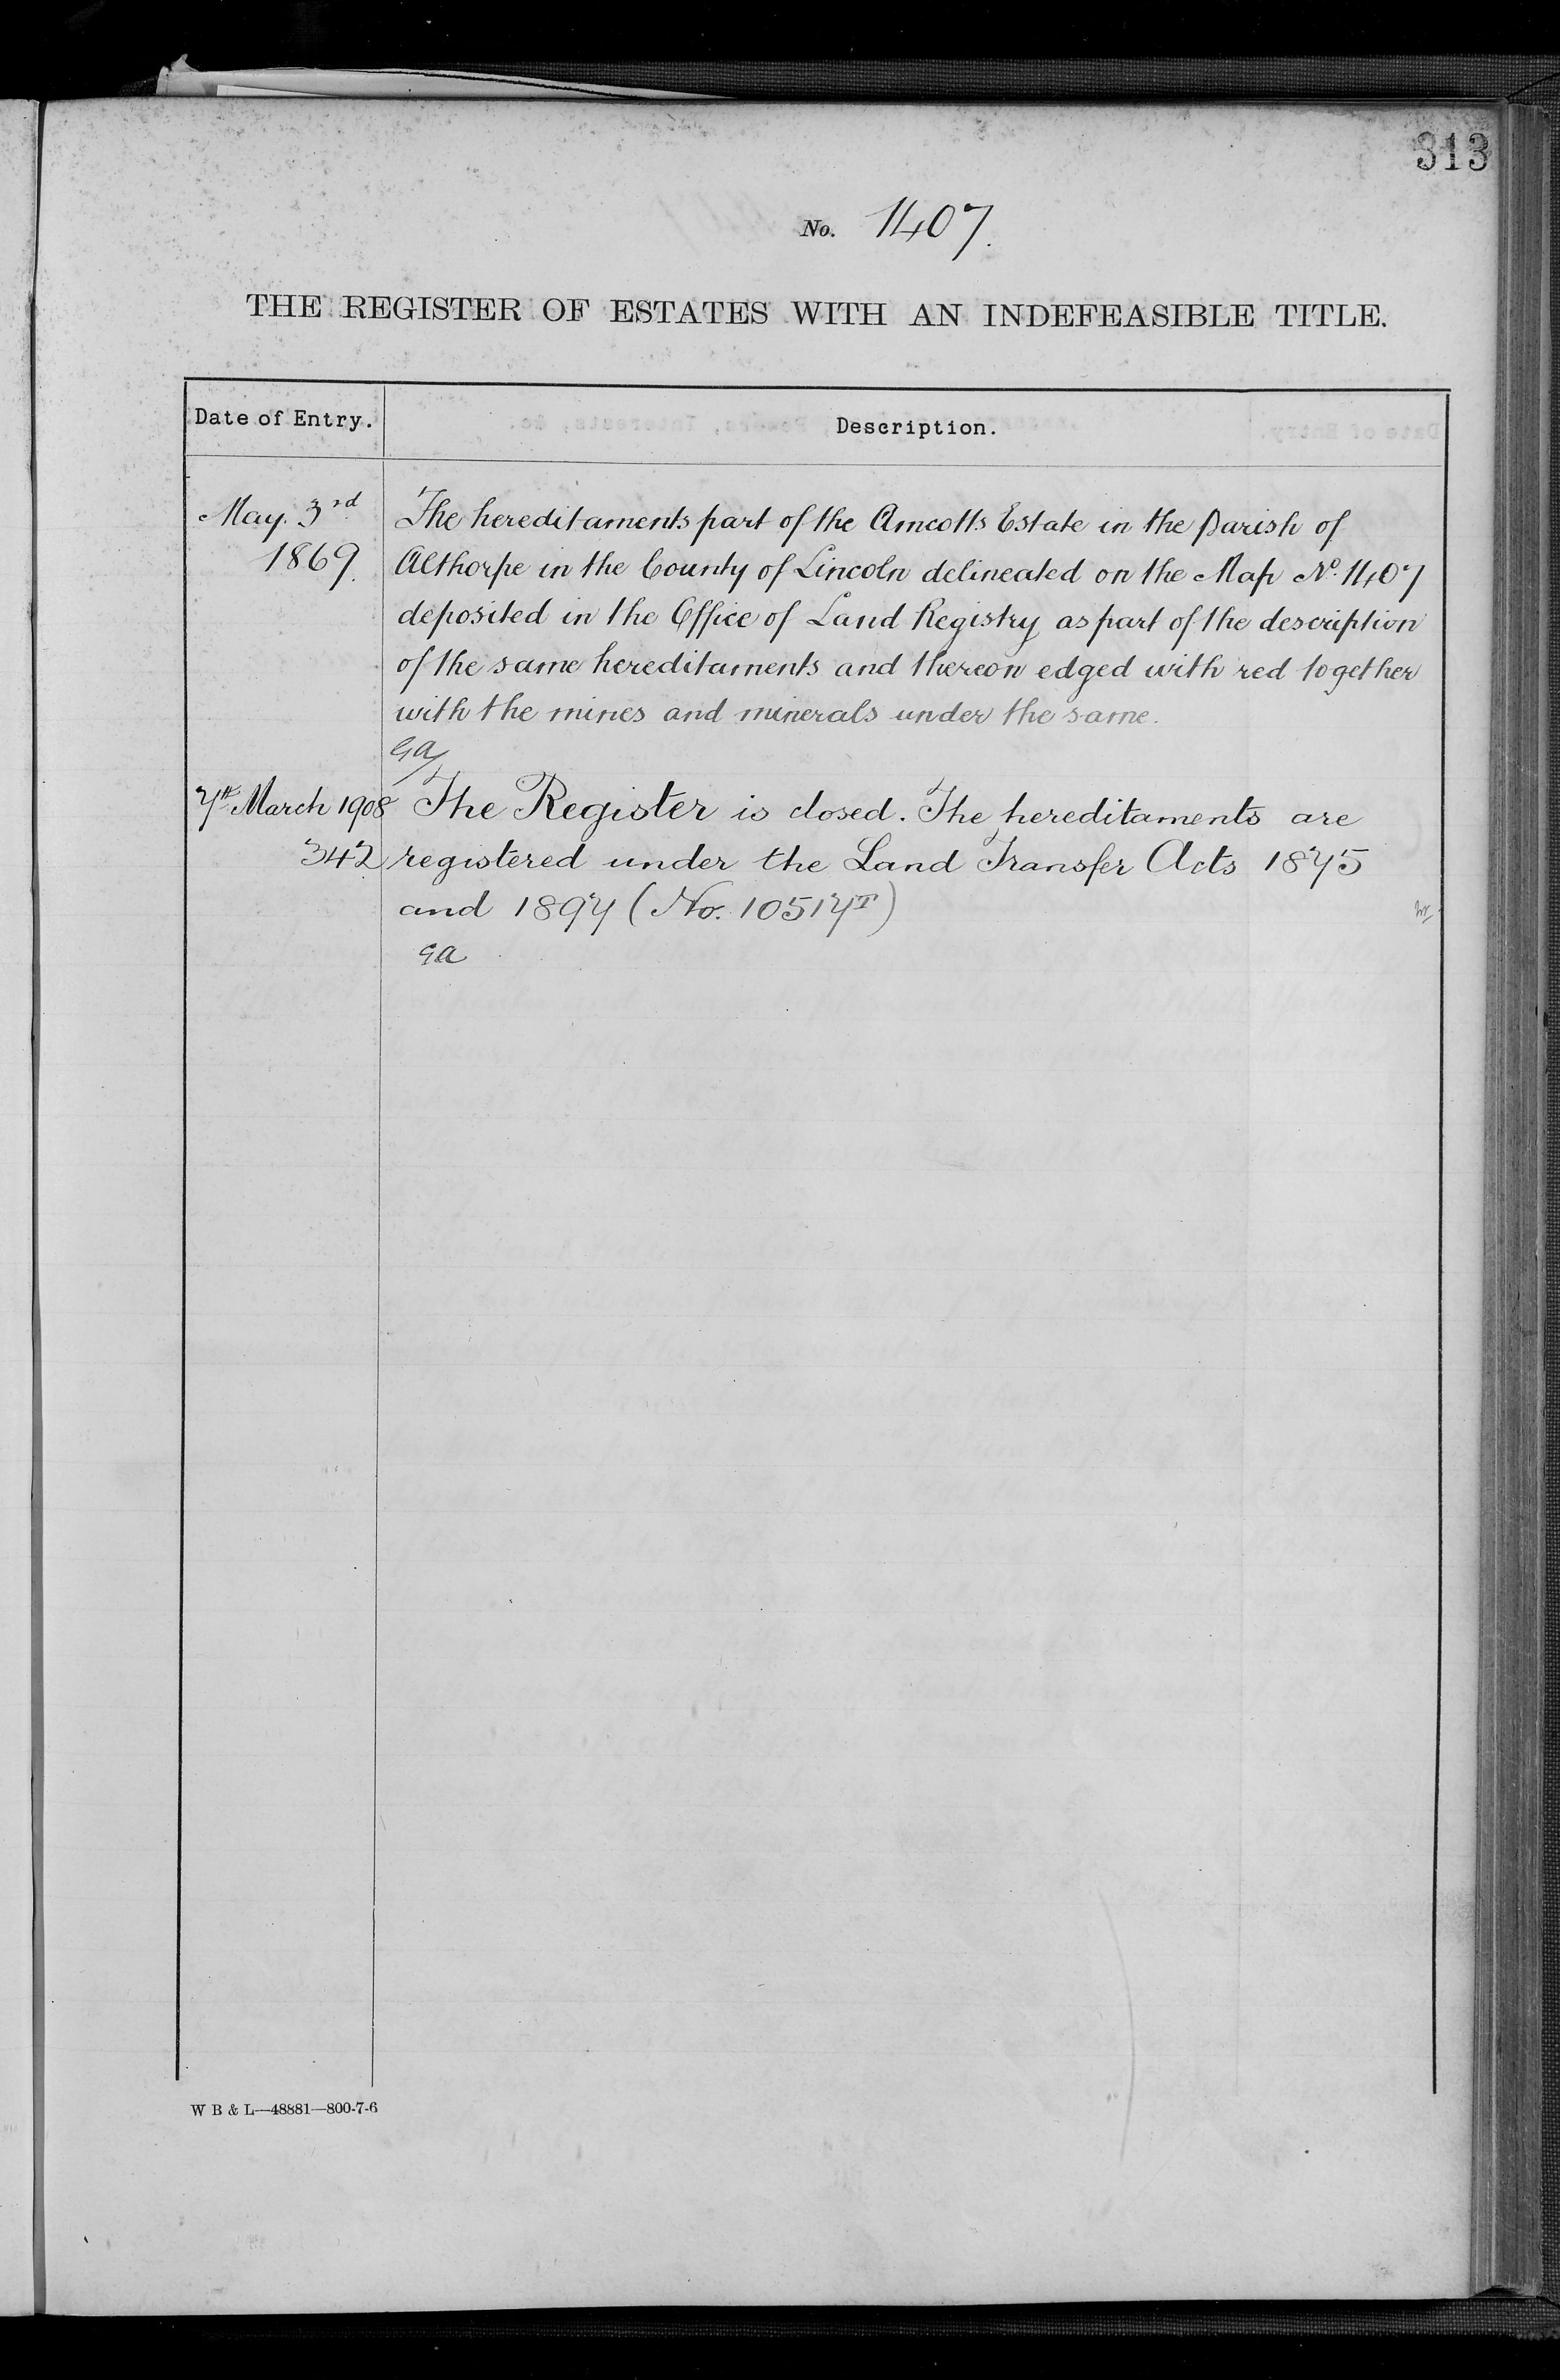 313
No. 1407.
THE REGISTER OF ESTATES WITH AN INDEFEASIBLE TITLE.
Date of Entry.
Description.
May. 3rd
1869.
The hereditaments part of the Amcotts Estate in the Parish of
Althorpe in the County of Lincoln delineated on the Map No. 1407
deposited in the Office of Land Registry as part of the description
of the same hereditaments and thereon edged with red together
with the mines and minerals under the same.
GA
7th March 1908
342
The Register is closed. The hereditaments are
registered under the Land Transfer Acts 1875
and 1897 (No. 10517T)
GA
W B & L—48881—800-7-6